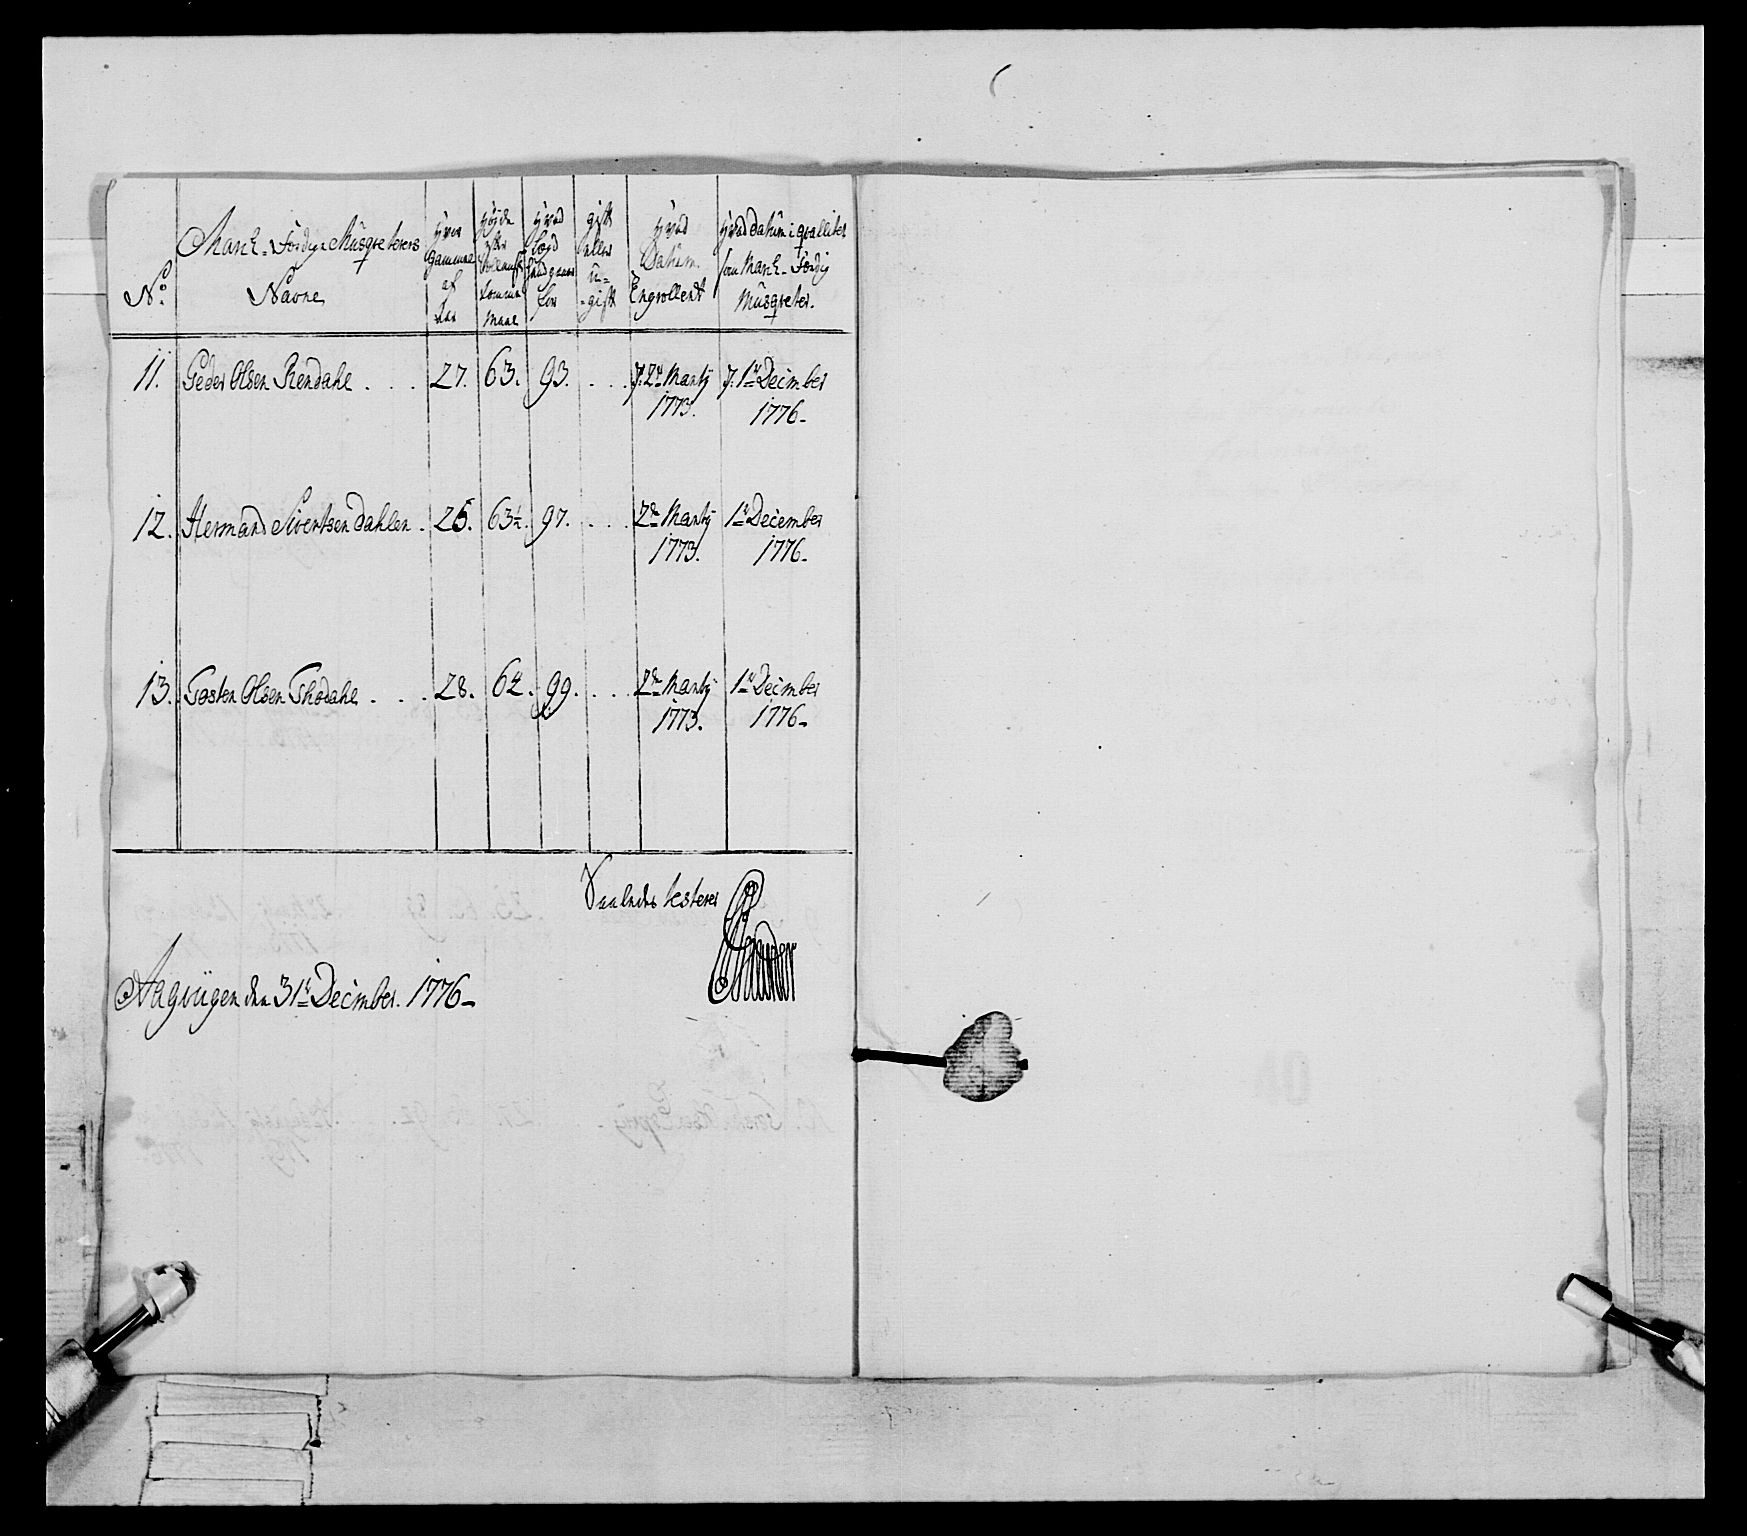 No.
March-Færdige Musqueterers
Navne
hvor
gammel
af
Aar
Høyde
efter
Maal
hvad
Lægd
for
gift
eller
u-
-gift
hvad
Datum
Enrollert
hvad datum i qvalitet
som March-Færdig
Musqveter.
11. Peder Olsen Rendahl . . . 27. 63. 93. . . . d: 2de Marty 1773. d: 1te December 1776-
12. Hermand Sivertsen Dahlen . 26. 63½. 97. . . . 2de Marty 1773. 1te December 1776-
13. Tosten Olsen Thodahl . . . 28. 64. 99. . . . 2de Marty 1773. 1te December 1776-
Saaledes testerer
Aagvügen den 31te December. 1776-